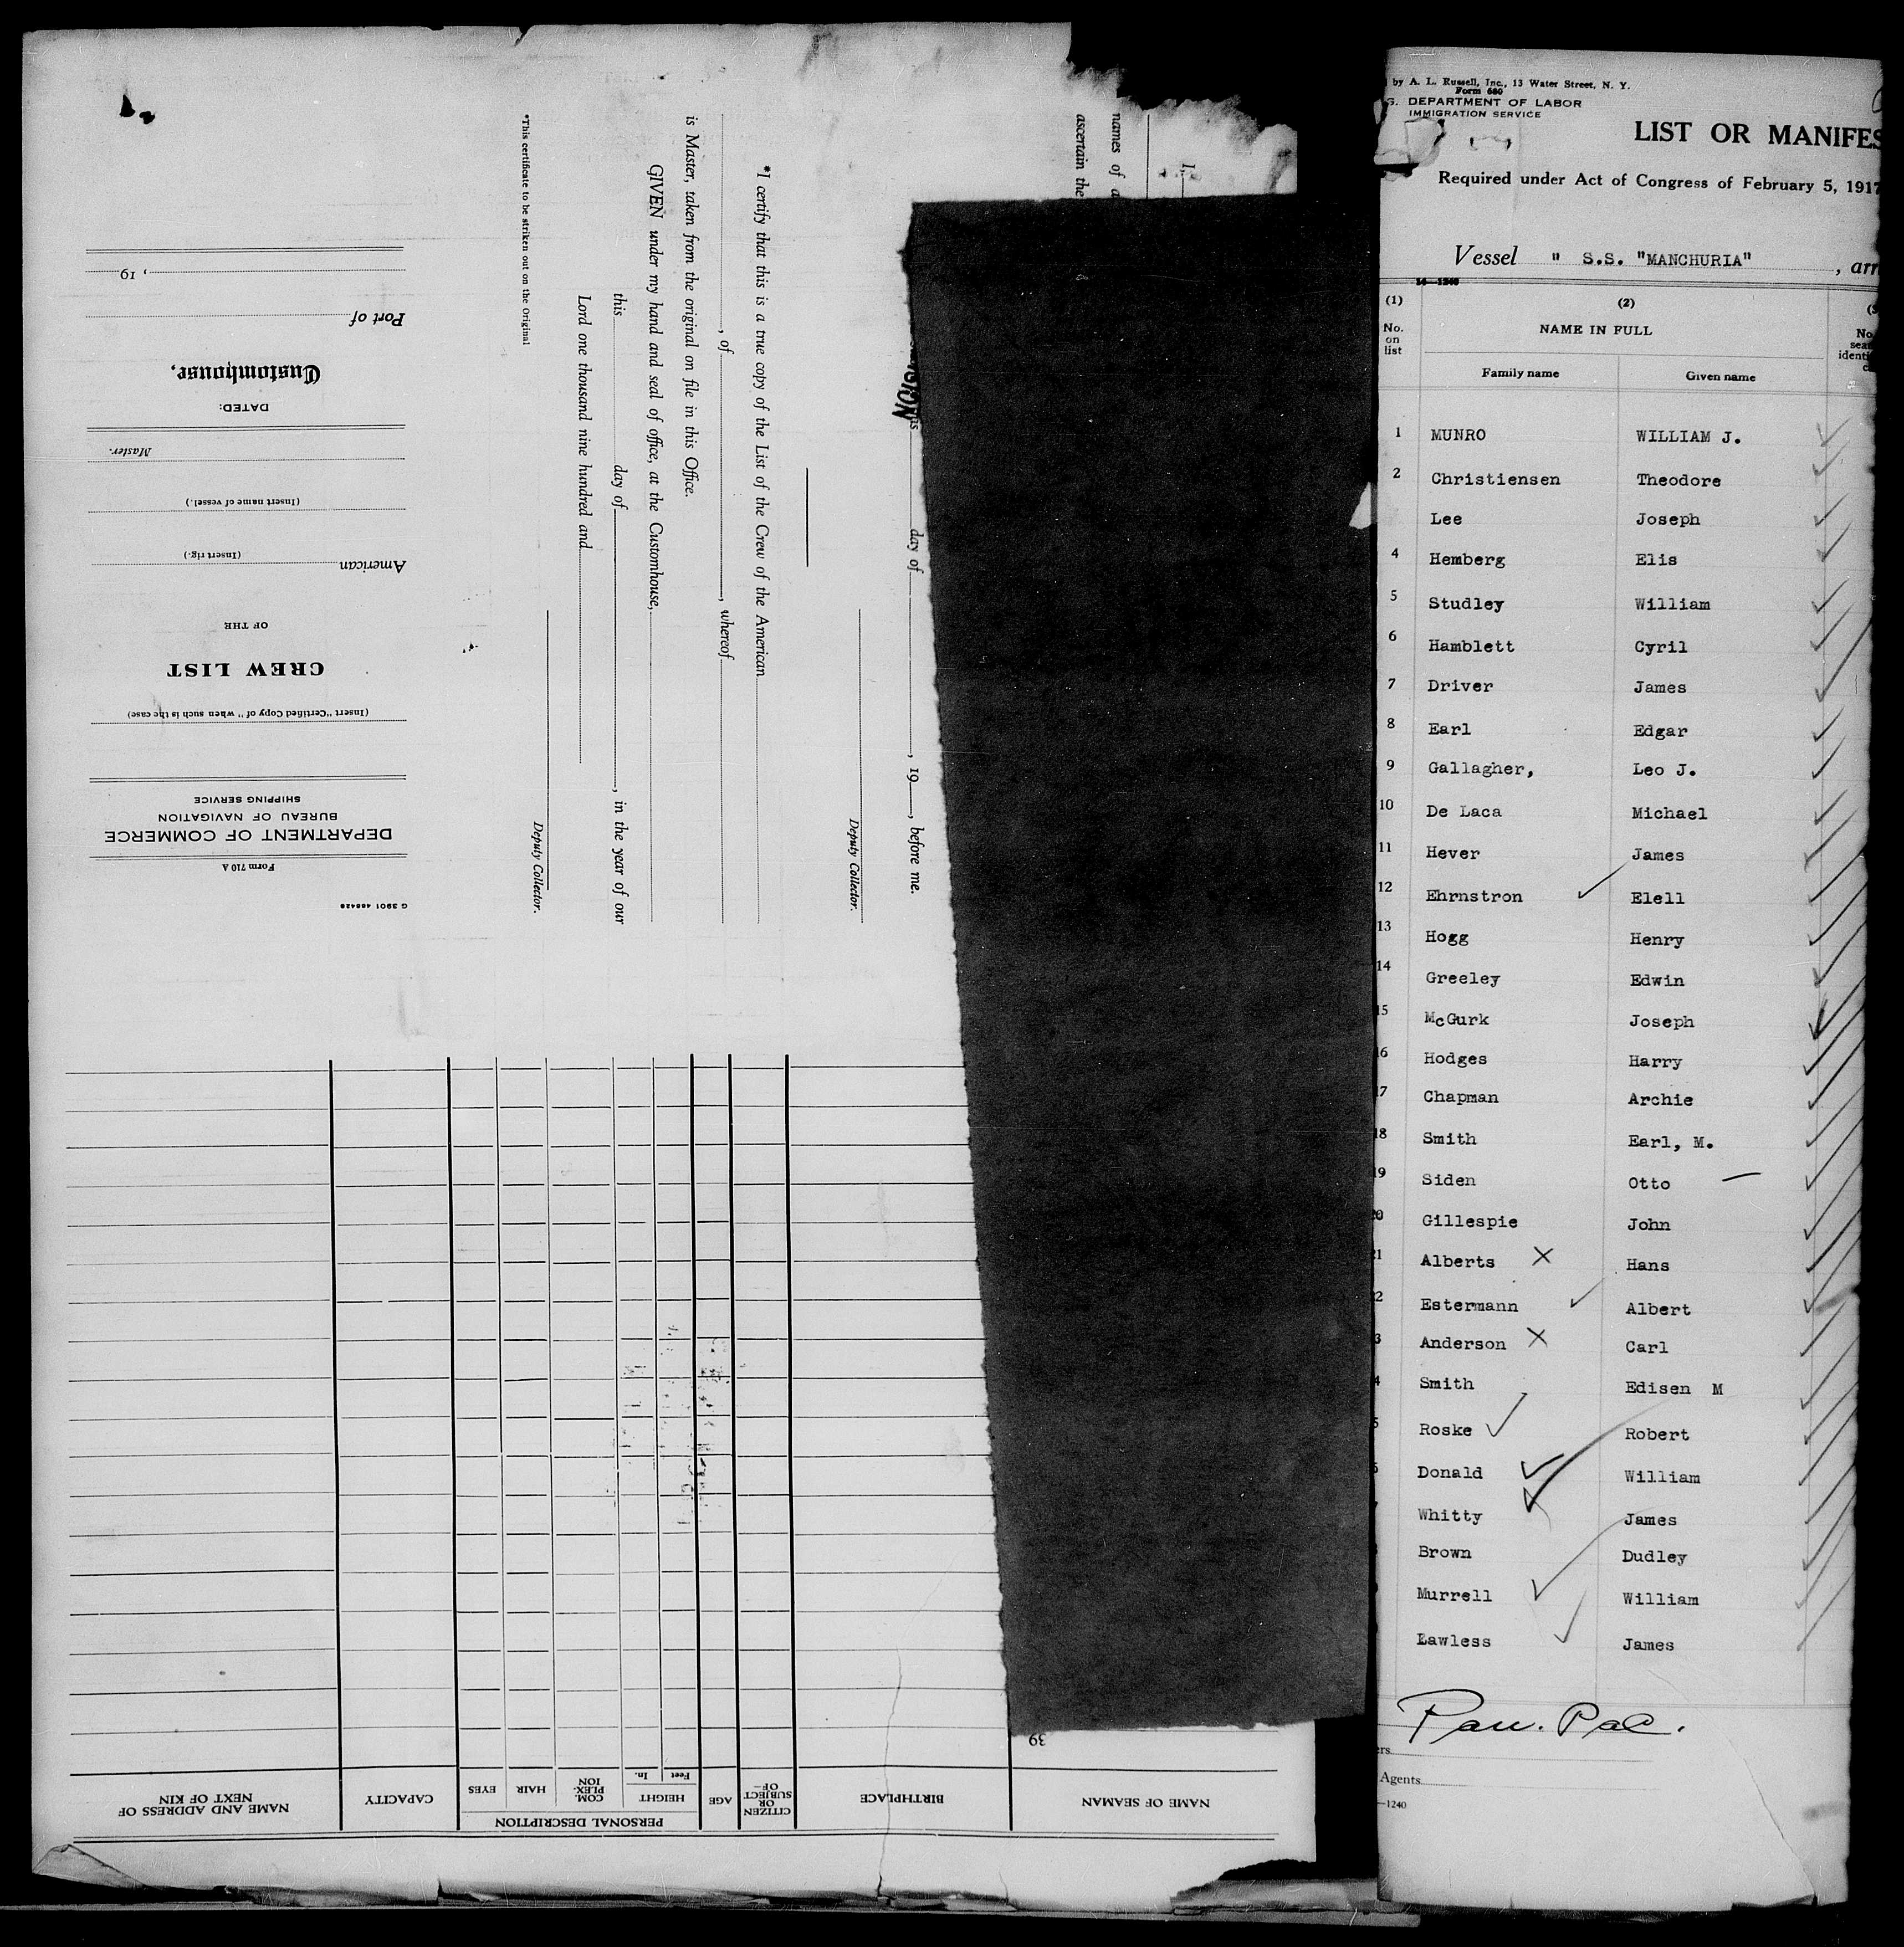 G 3901 486428
Form 710 A
DEPARTMENT OF COMMERCE
BUREAU OF NAVIGATION
SHIPPING SERVICE
(Insert "Certified Copy of" when such is the case)
CREW LIST
OF THE
American
(Insert rig.)
(Insert name of vessel.)
Master.
DATED:
Customhouse,
Port of
, 19
names of
ascertain the
I,
day of , 19 , before me.
Deputy Collector.
*I certify that this is a true copy of the List of the Crew of the American
, of , whereof
is Master, taken from the original on file in this Office.
GIVEN under my hand and seal of office, at the Customhouse,
this day of , in the year of our
Lord one thousand nine hundred and
Deputy Collector.
*This certificate to be striken out on the Original
NAME OF SEAMAN
BIRTHPLACE
CITIZEN OR SUBJECT OF—
AGE
PERSONAL DESCRIPTION
HEIGHT
Feet In.
COM-PLEX-ION
HAIR
EYES
CAPACITY
NAME AND ADDRESS OF NEXT OF KIN
39
by A. L. Russell, Inc., 13 Water Street, N. Y.
Form 680
S. DEPARTMENT OF LABOR
IMMIGRATION SERVICE
LIST OR MANIFES
Required under Act of Congress of February 5, 1917
Vessel " S.S. "MANCHURIA" , arri
14—1240
(1) (2)
No. on list
NAME IN FULL
Family name Given name
1 MUNRO WILLIAM J.
2 Christiensen Theodore
Lee Joseph
4 Hemberg Elis
5 Studley William
6 Hamblett Cyril
7 Driver James
8 Earl Edgar
9 Gallagher, Leo J.
10 De Laca Michael
11 Hever James
12 Ehrnstron Elell
13 Hogg Henry
14 Greeley Edwin
15 McGurk Joseph
16 Hodges Harry
17 Chapman Archie
18 Smith Earl, M.
19 Siden Otto
20 Gillespie John
21 Alberts X Hans
2 Estermann Albert
3 Anderson X Carl
4 Smith Edisen M
5 Roske Robert
6 Donald William
7 Whitty James
Brown Dudley
Murrell William
Lawless James
Pan. Pac.
ers
Agents
—1240